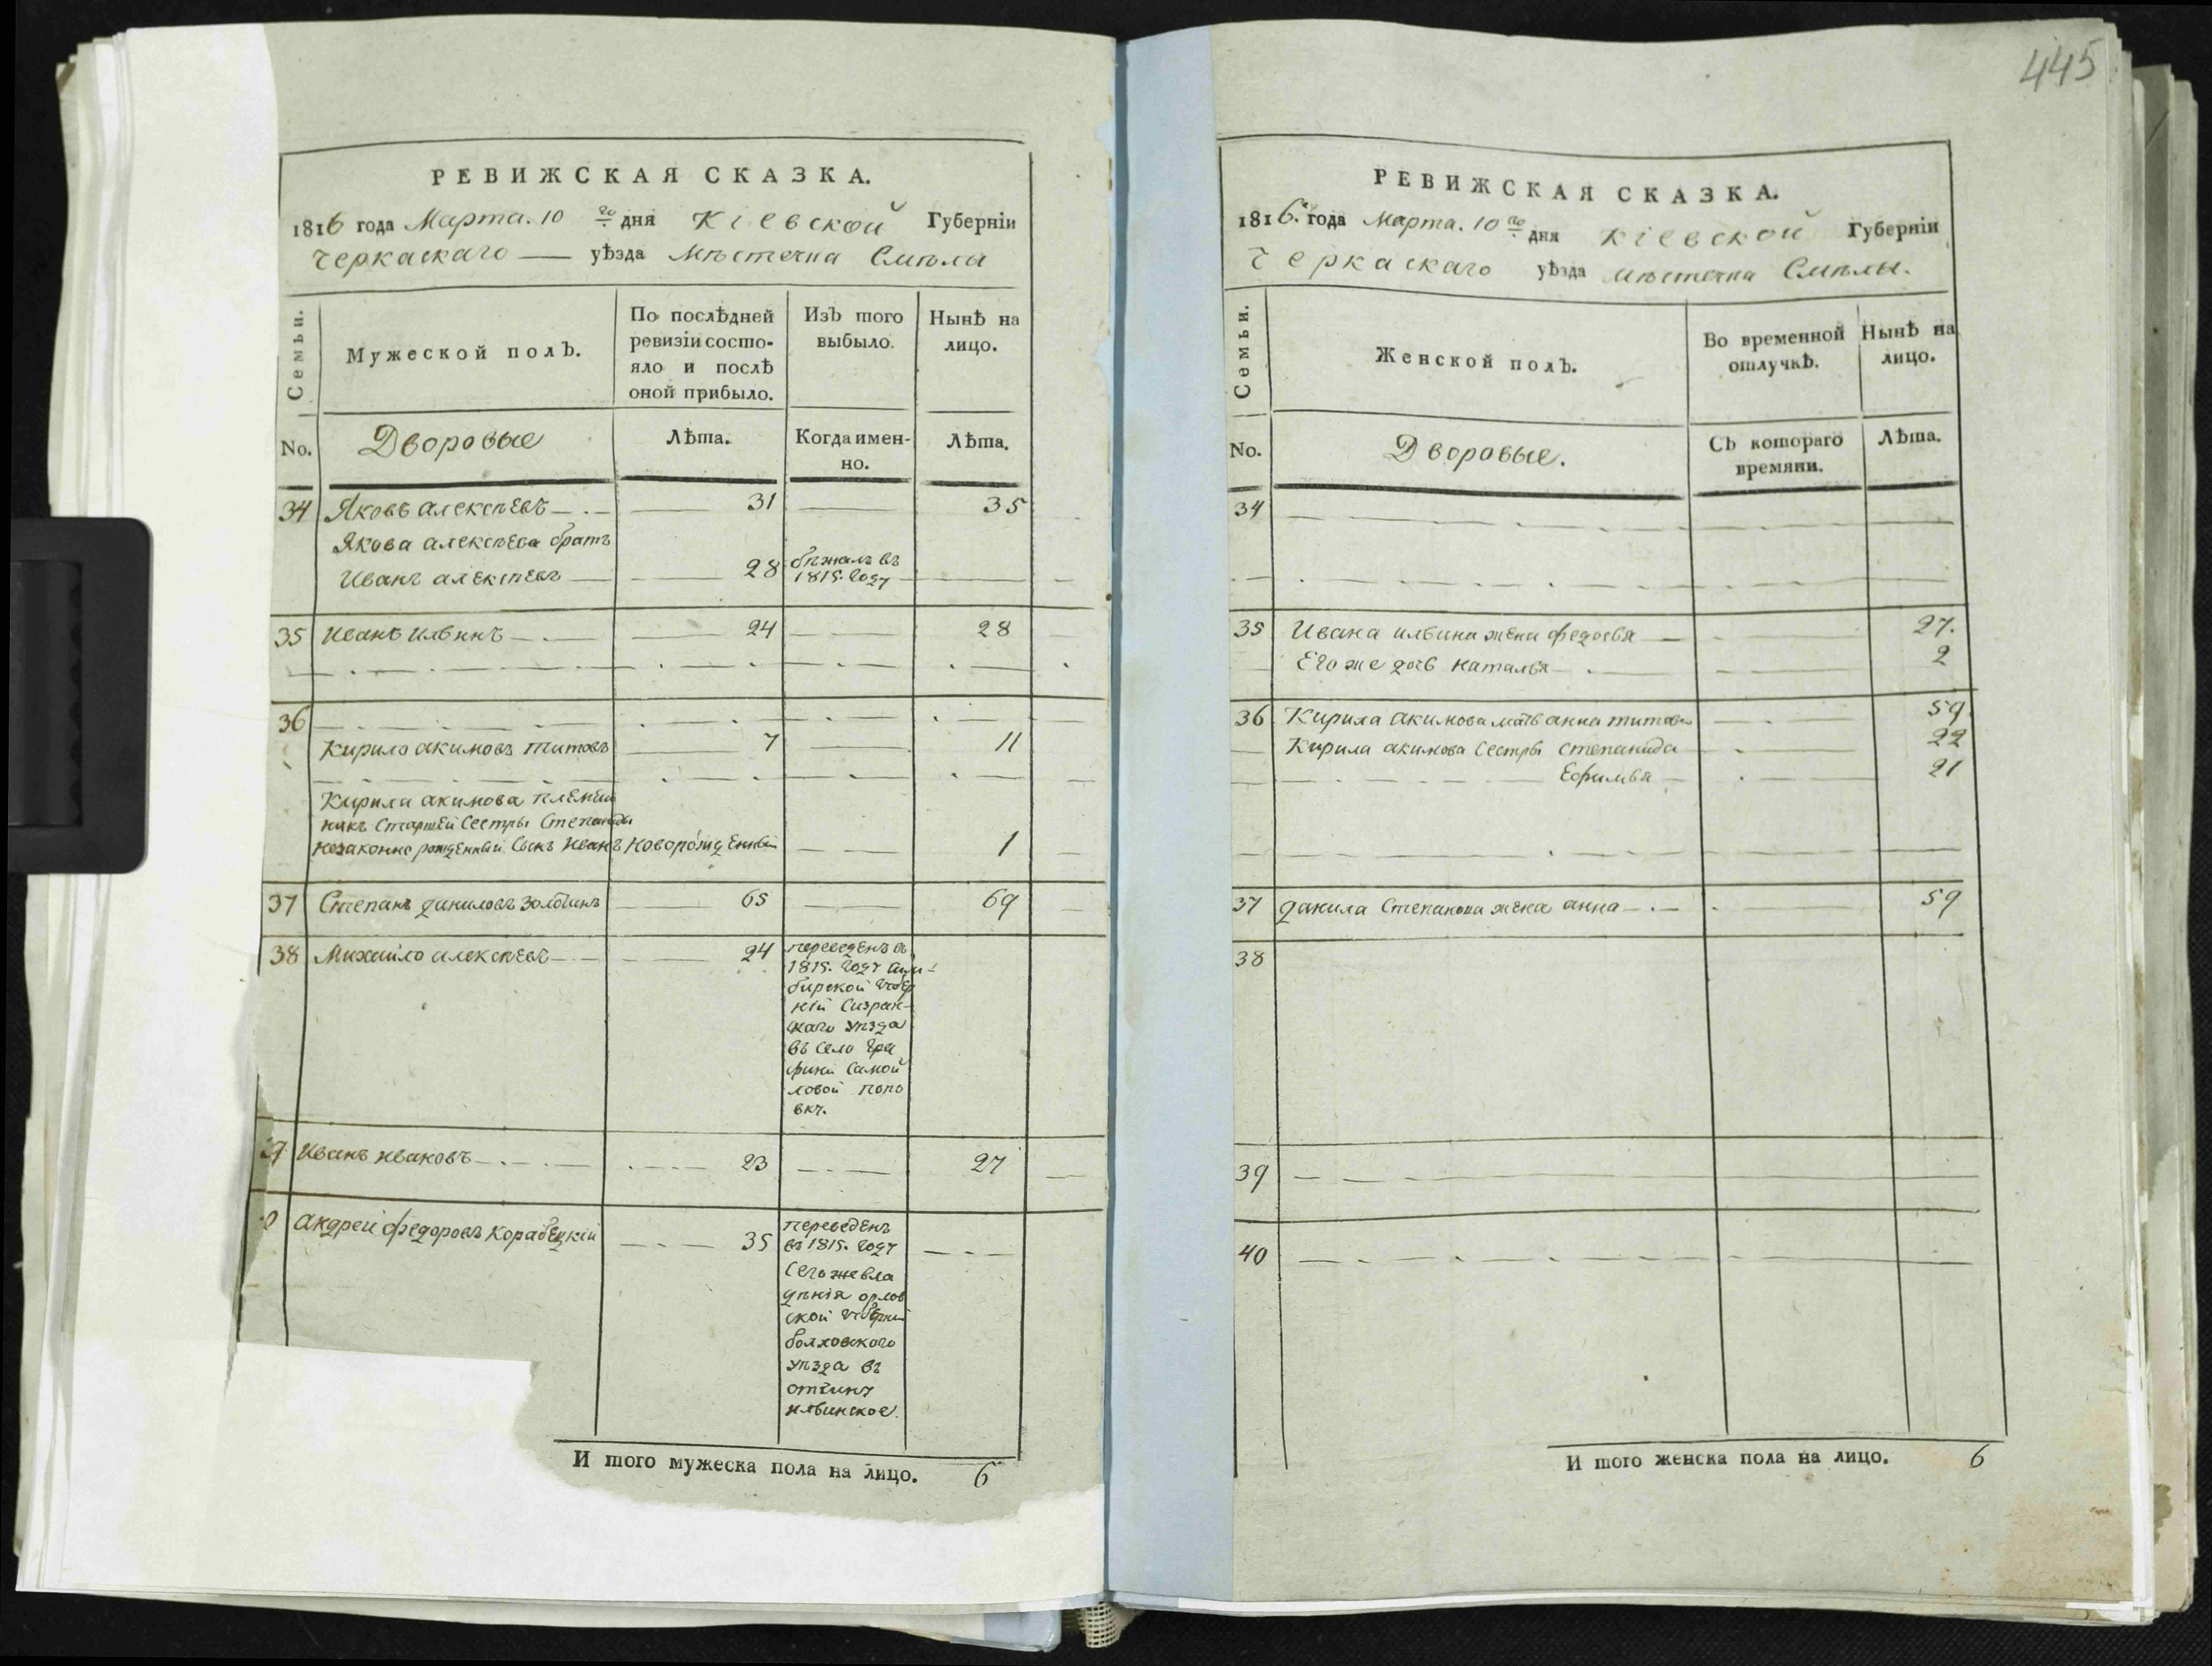 445
РЕВИЖСКАЯ СКАЗКА.
1816 года Марта. 10 го дня Кіевской Губерніи
Черкаскаго — уѣзда Мѣстечка Смѣлы
Семьи.
Мужеской полъ.
По послѣдней ревизіи состояло и послѣ оной прибыло.
Изъ того выбыло.
Нынѣ на лицо.
No.
Дворовые
Лѣта.
Когда именно.
Лѣта.
34 Яковъ алексѣевъ 31 35
Якова алексѣева братъ
Иванъ алексѣевъ 28 бѣжалъ въ
1815. году
35 Иванъ ильинъ 24 28
36
Кирило акимовъ титовъ 7 11
Кирила акимова племян
никъ Старшей Сестры Степаниды
незаконно рожденный Сынъ Иванъ Новорожденный 1
37 Степанъ даниловъ 65 69
38 Михайло алексѣевъ 24 переведенъ въ
1815. году Сим-
бирской Губер
ніи Сызран-
скаго уѣзда
въ село гра
фини Самой
ловой попо
вку.
Иванъ Ивановъ 23 27
Андрей федоровъ 35 переведенъ
въ 1815. году
Сегоже вла
дѣнія орлов
ской Губерніи
болховского
уѣзда въ
отчину
ильинское.
И того мужеска пола на лицо. 6
РЕВИЖСКАЯ СКАЗКА.
1816. года Марта. 10 го дня Кіевской Губерніи
Черкаскаго уѣзда мѣстечка Смѣлы.
Семьи.
Женской полъ.
Во временной отлучкѣ.
Нынѣ на лицо.
No.
Дворовые.
Съ котораго времяни.
Лѣта.
34
35 Ивана ильина жена федосья 27.
Его же дочь наталья 2
36 Кирила акимова мать анна титова 59
Кирила акимова Сестры Степанида 22
Ефимья 21
37 данила Степанова жена анна 59
38
39
40
И того женска пола на лицо. 6